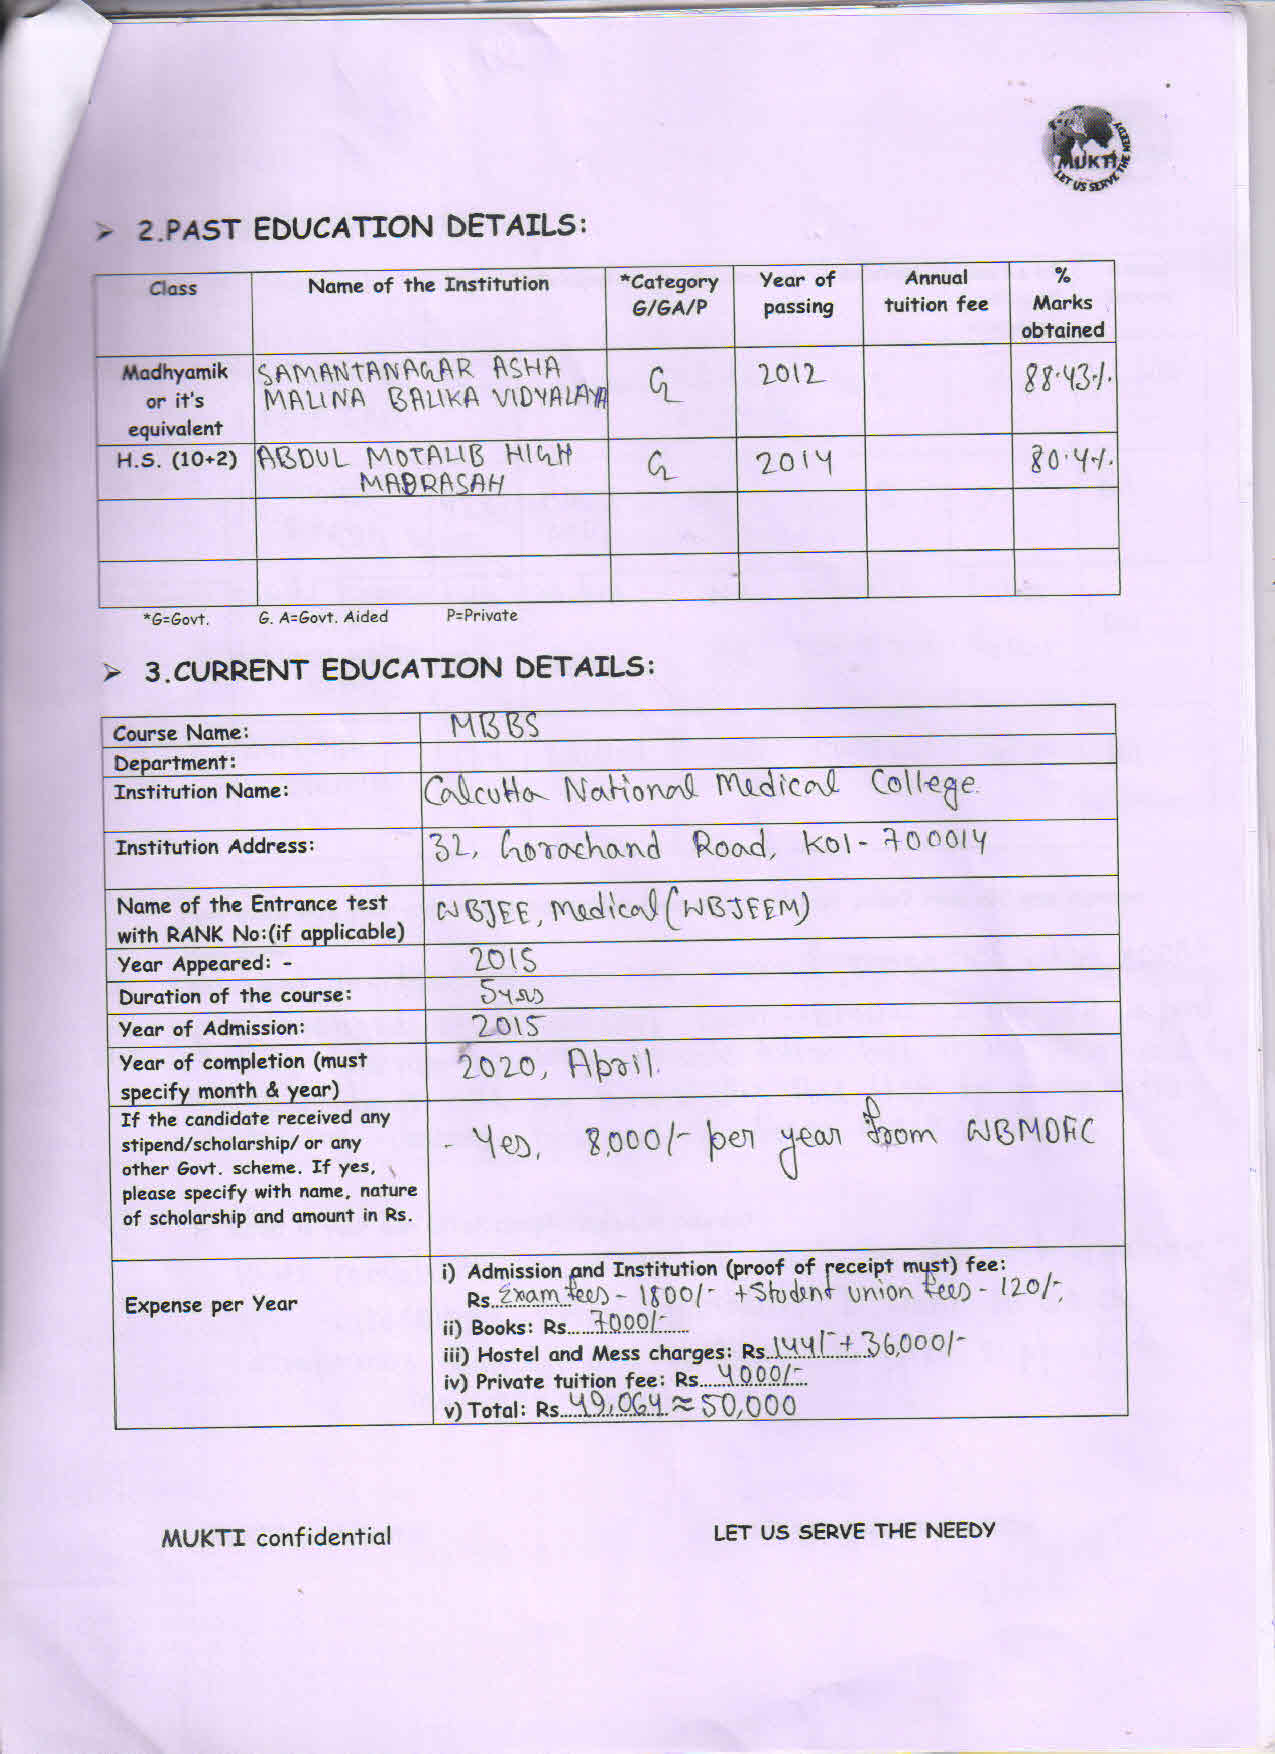 MUKTI
LET US SERVE THE NEEDY
➢ 2.PAST EDUCATION DETAILS:
Class Name of the Institution *Category G/GA/P Year of passing Annual tuition fee % Marks obtained
Madhyamik or it's equivalent SAMANTANAGAR ASHA MALINA BALIKA VIDYALAYA G 2012 88.43%
H.S. (10+2) ABDUL MOTALIB HIGH MADRASAH G 2014 80.4%
*G=Govt. G. A=Govt. Aided P=Private
➢ 3.CURRENT EDUCATION DETAILS:
Course Name: MBBS
Department:
Institution Name: Calcutta National Medical College
Institution Address: 32, Gorachand Road, Kol- 700014
Name of the Entrance test with RANK No:(if applicable) WBJEE, Medical (WBJEEM)
Year Appeared: - 2015
Duration of the course: 5yrs
Year of Admission: 2015
Year of completion (must specify month & year) 2020, April.
If the candidate received any stipend/scholarship/ or any other Govt. scheme. If yes, please specify with name, nature of scholarship and amount in Rs. - Yes, 8,000/- per year from WBMDFC
Expense per Year
i) Admission and Institution (proof of receipt must) fee:
Rs. Exam fees - 1800/- + Student union fees - 120/-,
ii) Books: Rs...... 7000/-
iii) Hostel and Mess charges: Rs. 144/- + 36,000/-
iv) Private tuition fee: Rs...... 4000/-
v) Total: Rs..... 49,064 ≈ 50,000
MUKTI confidential LET US SERVE THE NEEDY